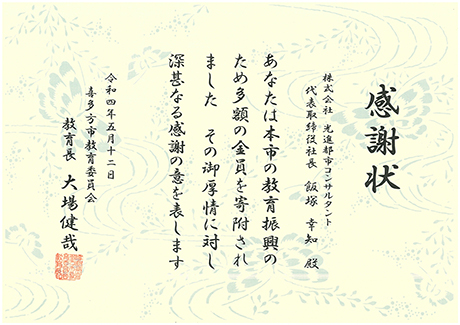 感謝状
株式会社 光進都市コンサルタント
代表取締役社長 飯塚 幸知 殿
あなたは本市の教育振興の
ため多額の金員を寄附され
ました その御厚情に対し
深甚なる感謝の意を表します
令和四年五月十二日
喜多方市教育委員会
教育長 大場健哉